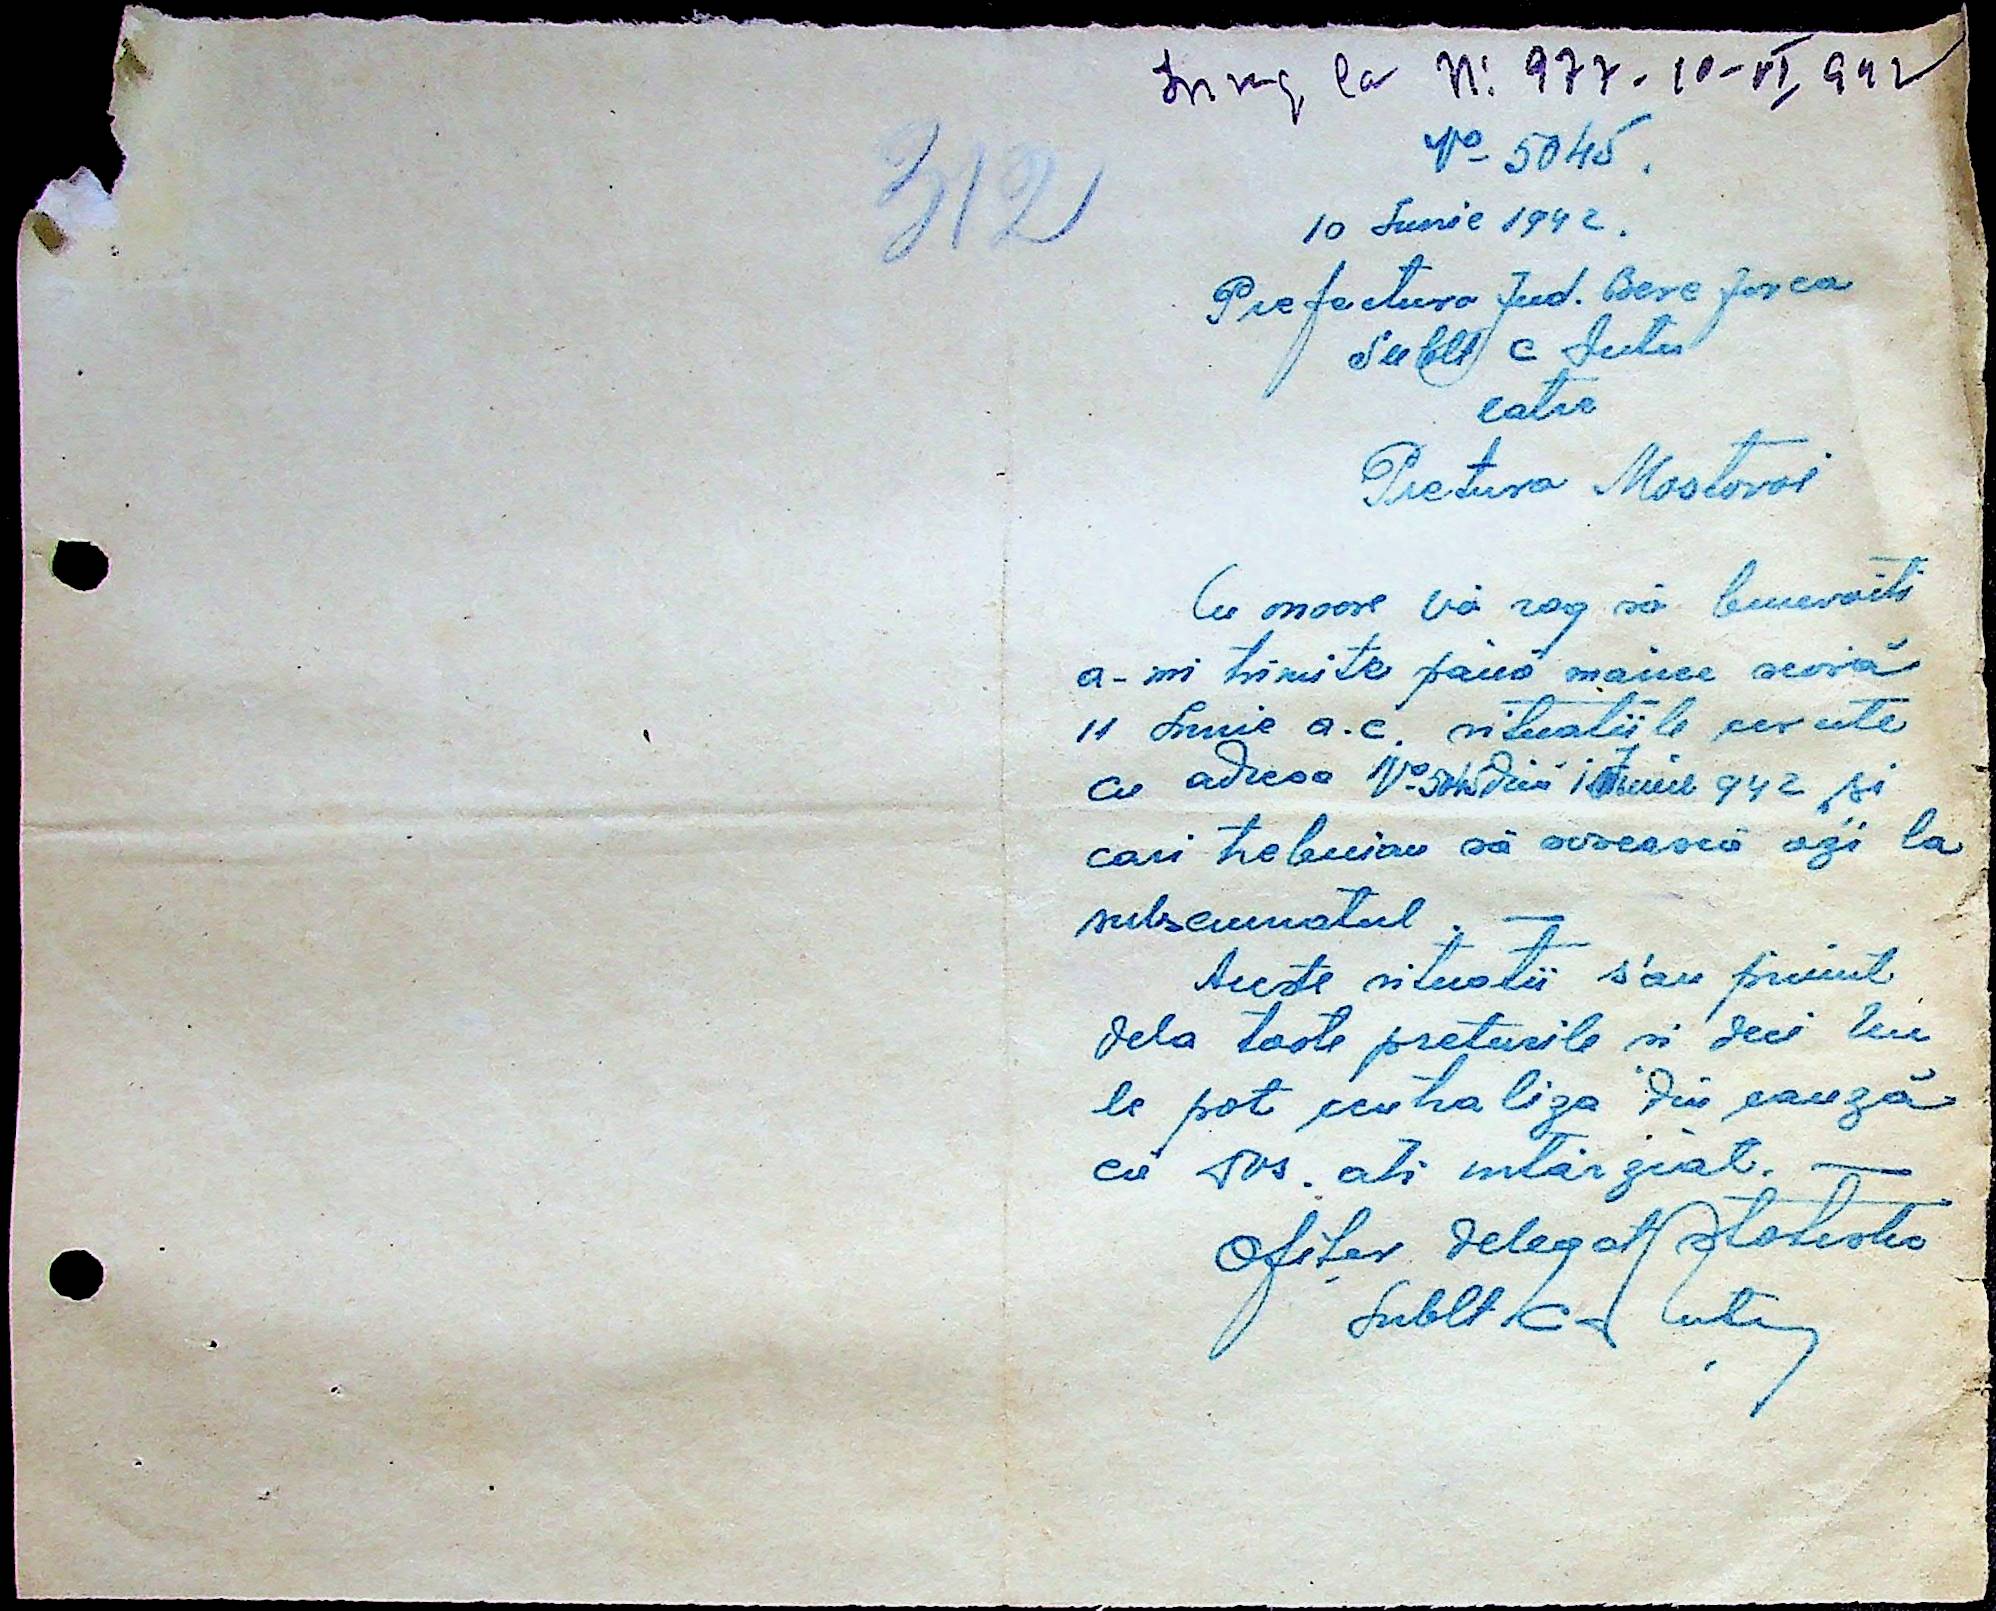 Înreg. la N. 977 - 10-VI, 942
312
No 5045.
10 Iunie 1942.
Prefectura Jud. Berezovca
Sublt C Dutu
catre
Pretura Mostovoi
Cu onoare vă rog să benevoiti
a-mi trimite până mâine seară
11 Iunie a.c. situatiile cerute
cu adresa No din Iunie 942 și
cari trebuiau să sosească azi la
subsemnatul. —
Aceste situatii s'au primit
dela toate preturile si deci nu
le pot centraliza din cauză
că Dvs. ati intârziat. —
Ofițer delegat
Sublt C